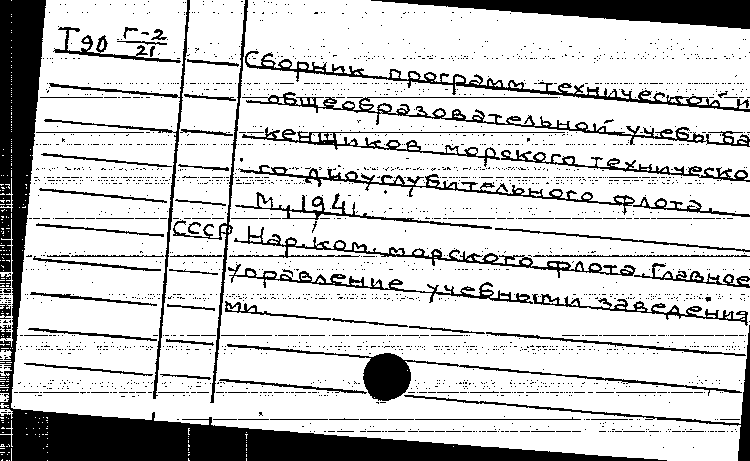 Т90 Г-2/21
Сборник программ технической и
общеобразовательной учебы ба
кенщиков морского техническо
го дноуглубительного флота.
М., 1941.
СССР. Нар. ком. морского флота. Главное
управление учебными заведения
ми.